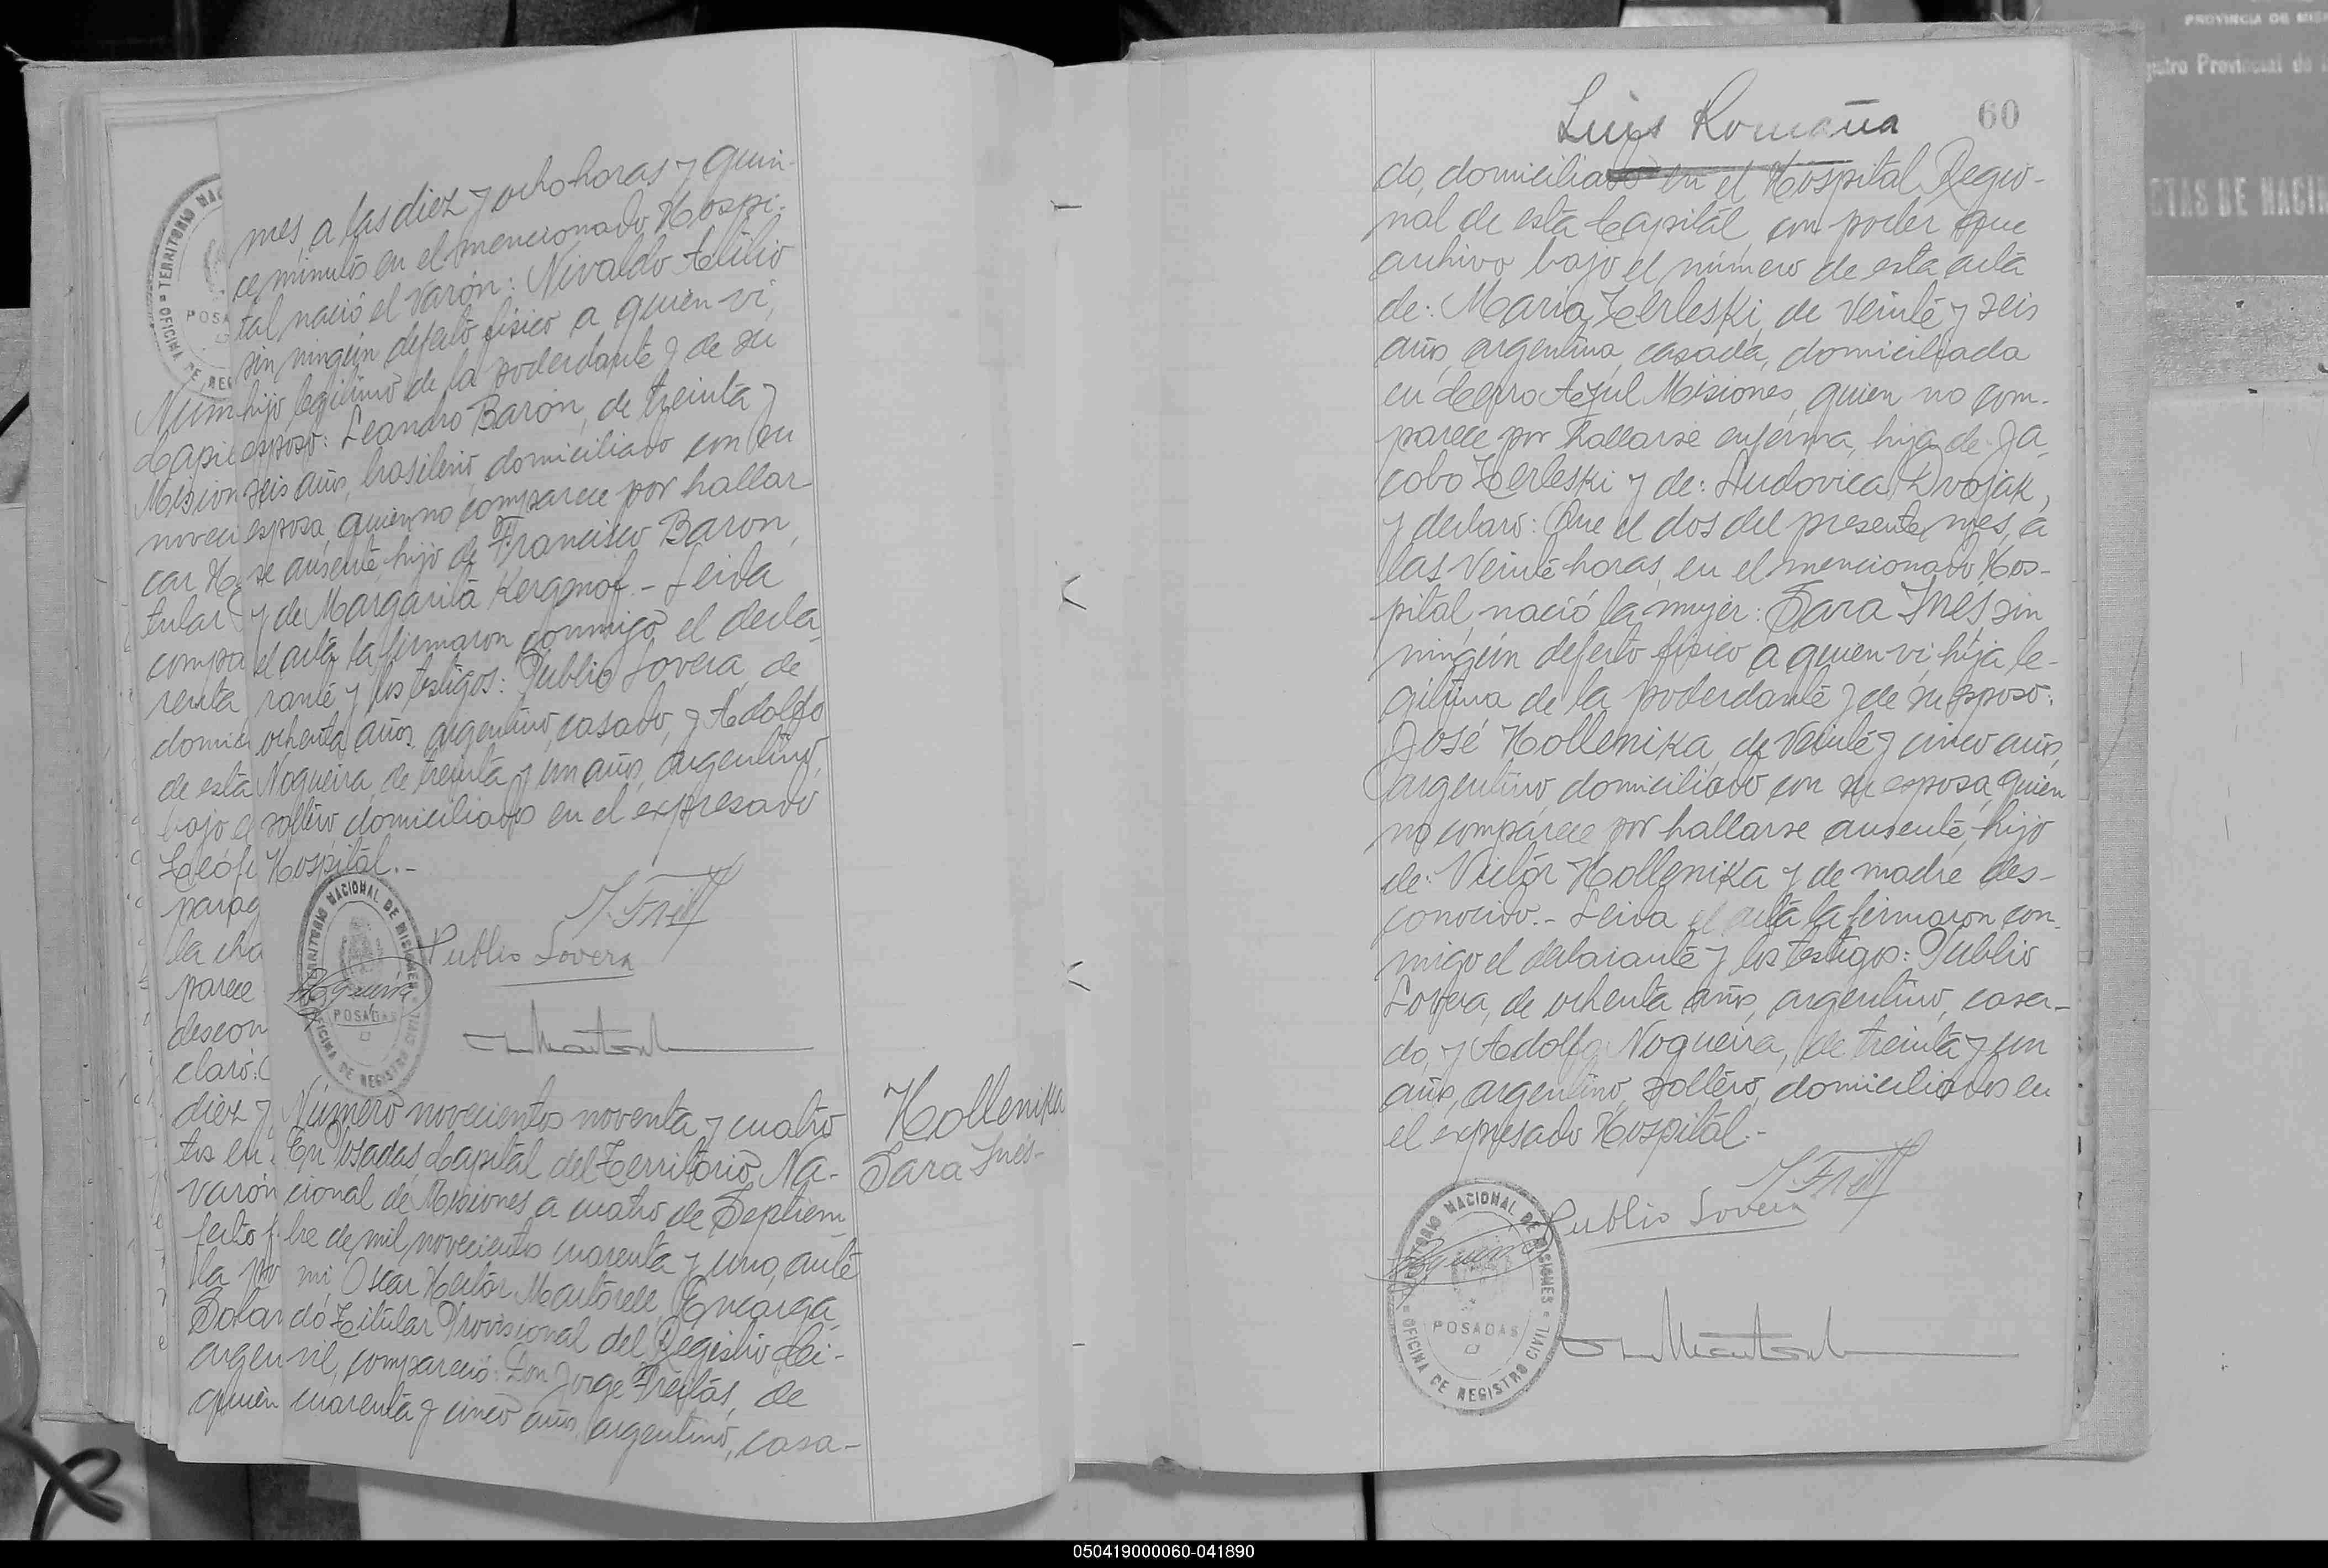 mes, a las diez y ocho horas y quin-
ce minutos en el mencionado Hospi-
tal nació el varón: Nivaldo Atilio
sin ningún defecto físico a quien vi,
hijo legítimo de la poderdante y de su
esposo: Leandro Barón, de treinta y
seis años, brasileño, domiciliado con su
esposa, quien no comparece por hallar
se ausente, hijo de Francisco Baron,
y de Margarita - Leida
el acta la firmaron conmigo el decla-
rante y los testigos: Publio Lovera, de
ochenta años, argentino, casado, y Adolfo
Nogueira, de treinta y un años, argentino,
soltero, domiciliados en el expresado
Hospital.-
Publio Lovera
TERRITORIO NACIONAL DE MISIONES
POSADAS
OFICINA DE REGISTRO CIVIL
Número novecientos noventa y cuatro
En Posadas Capital del Territorio Na-
cional de Misiones, a cuatro de Septiem-
bre de mil novecientos cuarenta y uno, ante
mi, Oscar Hector Martorell, Encarga-
do Titular Provisional del Registro Ci-
vil, compareció: Don Jorge Freitas, de
cuarenta y cinco años, argentino, casa-
Hollenika
Sara Inés-
Luis Romaña
60
do, domiciliado en el Hospital Regio-
nal de esta Capital, con poder que
archivo bajo el número de esta acta
de: Maria Zerleski, de veinte y seis
años, argentina, casada, domiciliada
en Cerro Azul Misiones, quien no com-
parece por hallarse enferma, hija de Ja-
cobo Zerleski y de: Ludovica Dvojak,
y declaro: Que el dos del presente mes, a
las veinte horas, en el mencionado Hos-
pital, nació la mujer: Sara Inés, sin
ningún defecto físico a quien vi, hija le-
gítima de la poderdante y de su esposo:
José Hollenika, de veinte y cinco años,
argentino, domiciliado con su esposa, quien
no comparece por hallarse ausente, hijo
de: Victor Hollenika y de madre des-
conocido.- Leida el acta la firmaron con-
migo el declarante y los testigos: Publio
Lovera, de ochenta años, argentino, casa-
do, y Adolfo Nogueira, de treinta y un
años, argentino, soltero, domiciliados en
el expresado Hospital.-
Publio Lovera
TERRITORIO NACIONAL DE MISIONES
POSADAS
OFICINA DE REGISTRO CIVIL
050419000060-041890